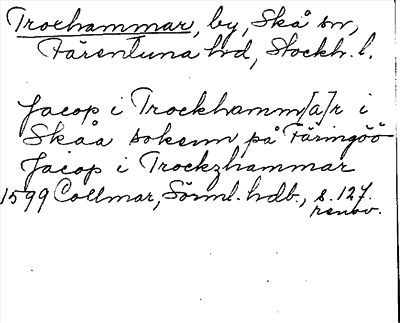 Troxhammar, by, Skå sn,
Färentuna hd, Stockh. l.
Jacop i Trockhamm[a]r i
Skåå sokenn på Färingöö
Jacop i Trockzhammar
1599 Collmar, Sörml. hdb., s. 127.
renov.